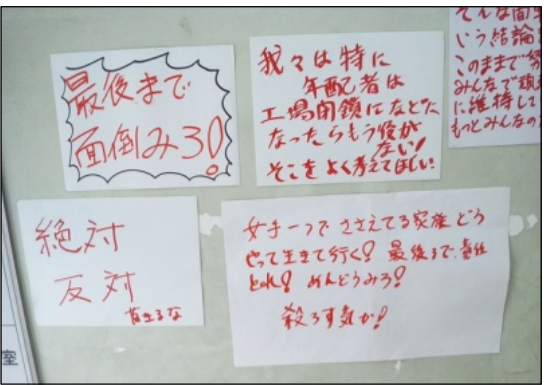 最後まで
面倒みろ!
我々は特に
年配者は
工場閉鎖になどに
なったらもう後が
ない!
そこをよく考えてほしい!
そんな
いう結論
このままで
みんなで現
に維持して
もっとみんなの
絶対
反対
首きるな
女手一つでささえてる家族どう
やって生きて行く! 最後まで、責任
とれ! めんどうみろ!
殺ろす気か!
室